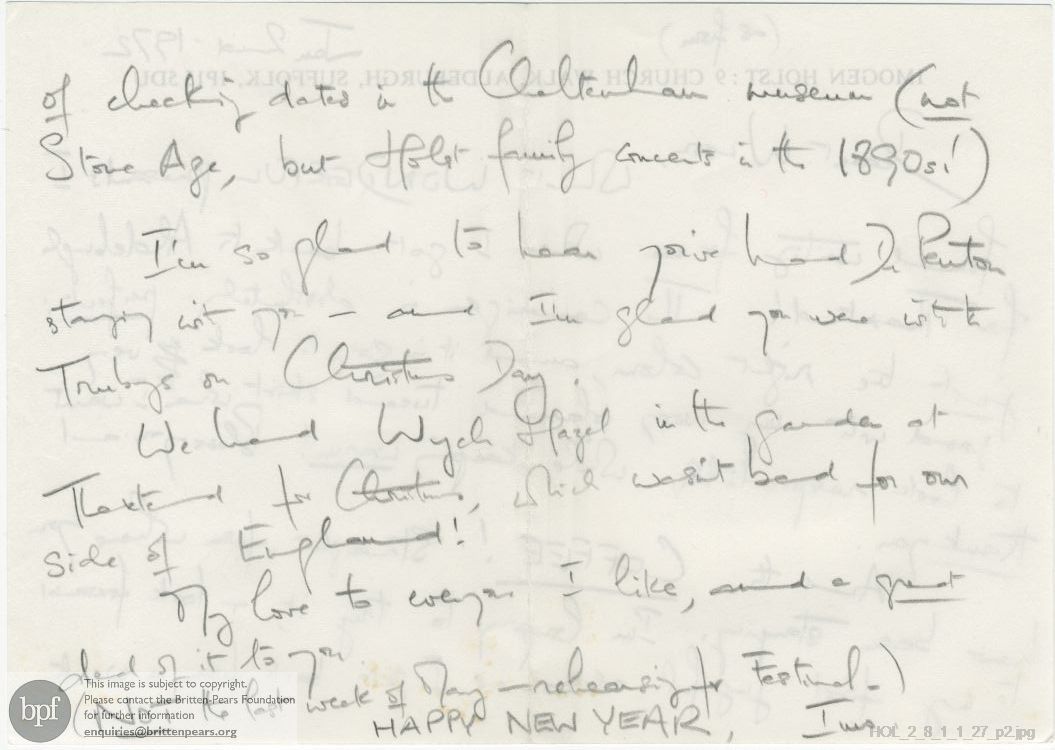 of checking dates in the Cheltenham museum (not
Stone Age, but Holst family concerts in the 1890s!)
I'm so glad to hear you've had Dr Penton
staying with you – and I'm glad you were with the
Trubys on Christmas Day.
We had Wych Hazel in the garden at
Thaxted for Christmas, which wasn't bad for our
side of England!
My love to everyone I like, and a great
deal of it to you
the last week of May – rehearsing for Festival –)
HAPPY NEW YEAR, Imo
IMOGEN HOLST : 9 CHURCH WALK, ALDEBURGH, SUFFOLK, IP15 5DU
Jan 2nd 1972
bpf
This image is subject to copyright.
Please contact the Britten-Pears Foundation
for further information
enquiries@brittenpears.org
HOL_2_8_1_1_27_p2.jpg